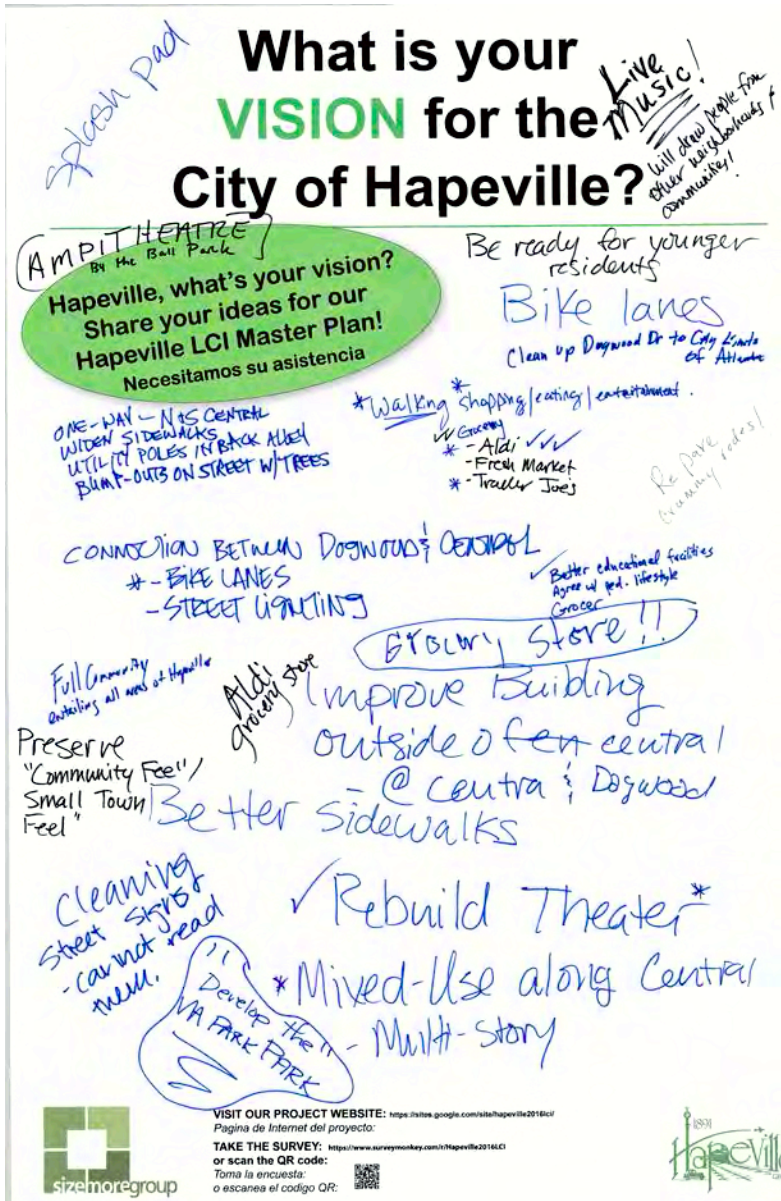 Splash pad
What is your
VISION for the
City of Hapeville?
Live
Music!
will draw people from
other neighborhoods &
communities!
AMPITHEATRE
By the Ball Park
Hapeville, what's your vision?
Share your ideas for our
Hapeville LCI Master Plan!
Necesitamos su asistencia
Be ready for younger
residents
Bike lanes
Clean up Dogwood Dr to City Limits
of Atlanta
ONE-WAY - N & S CENTRAL
WIDEN SIDEWALKS
UTILITY POLES IN BACK ALLEY
BUMP-OUTS ON STREET W/TREES
*Walking *shopping/eating/entertainment.
✓✓ Grocery
* - Aldi ✓✓✓
- Fresh Market
* - Trader Joe's
Re pave
crummy rodes!
CONNECTION BETWEEN DOGWOOD & CENTRAL
* - BIKE LANES
- STREET LIGHTING
✓ Better educational facilities
Agree w/ ped. lifestyle
Grocer
Grocery Store!!
Full Community
entailing all areas of Hapeville
Aldi
grocery store
Improve Building
outside of central
- @ centra & Dogwood
Preserve
"Community Feel"/
Small Town
Feel"
Better Sidewalks
Cleaning
Street Signs
- cannot read
them.
✓ Rebuild Theater*
*Mixed-Use along Central
- Multi-Story
"Develop the"
MA PARK PARK
VISIT OUR PROJECT WEBSITE: https://sites.google.com/site/hapeville2016lci/
Pagina de Internet del proyecto:
TAKE THE SURVEY: https://www.surveymonkey.com/r/Hapeville2016LCI
or scan the QR code:
Toma la encuesta:
o escanea el codigo QR:
sizemoregroup
1891
Hapeville